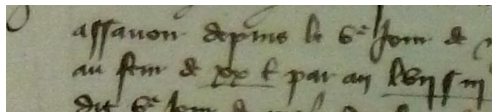 assavoir depuis le 6e jour de
au feur de xx £ par an lvii s iii
dit 6e jour de